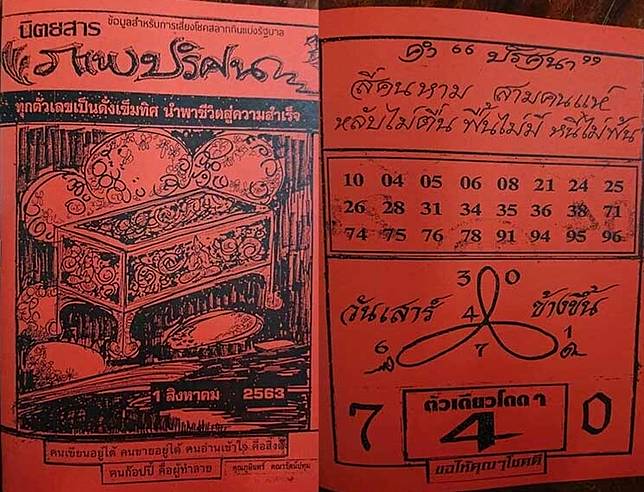 นิตยสาร ข้อมูลสำหรับการเสี่ยงโชคสลากกินแบ่งรัฐบาล
ภาพปริศนา
ทุกตัวเลขเป็นดั่งเข็มทิศ นำพาชีวิตสู่ความสำเร็จ
1 สิงหาคม 2563
คนเขียนอยู่ได้ คนขายอยู่ได้ คนอ่านเข้าใจ คือสิ่งดี
คนก๊อปปี้ คือผู้ทำลาย
คำ " ปริศนา "
สี่คนหาม สามคนแห่
หลับไม่ตื่น ฟื้นไม่มี หนีไม่พ้น
10 04 05 06 08 21 24 25
26 28 31 34 35 36 38 71
74 75 76 78 91 94 95 96
3 0
วันเสาร์ 4 ข้างขึ้น
6 7 1
7 ตัวเดียวโดดๆ 0
4
ขอให้คุณๆโชคดี